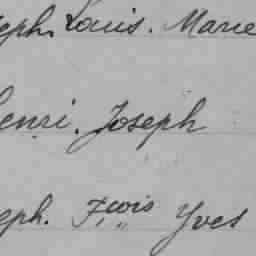 eph. Louis. Marie
enri. Joseph
eph. Fçois Yves